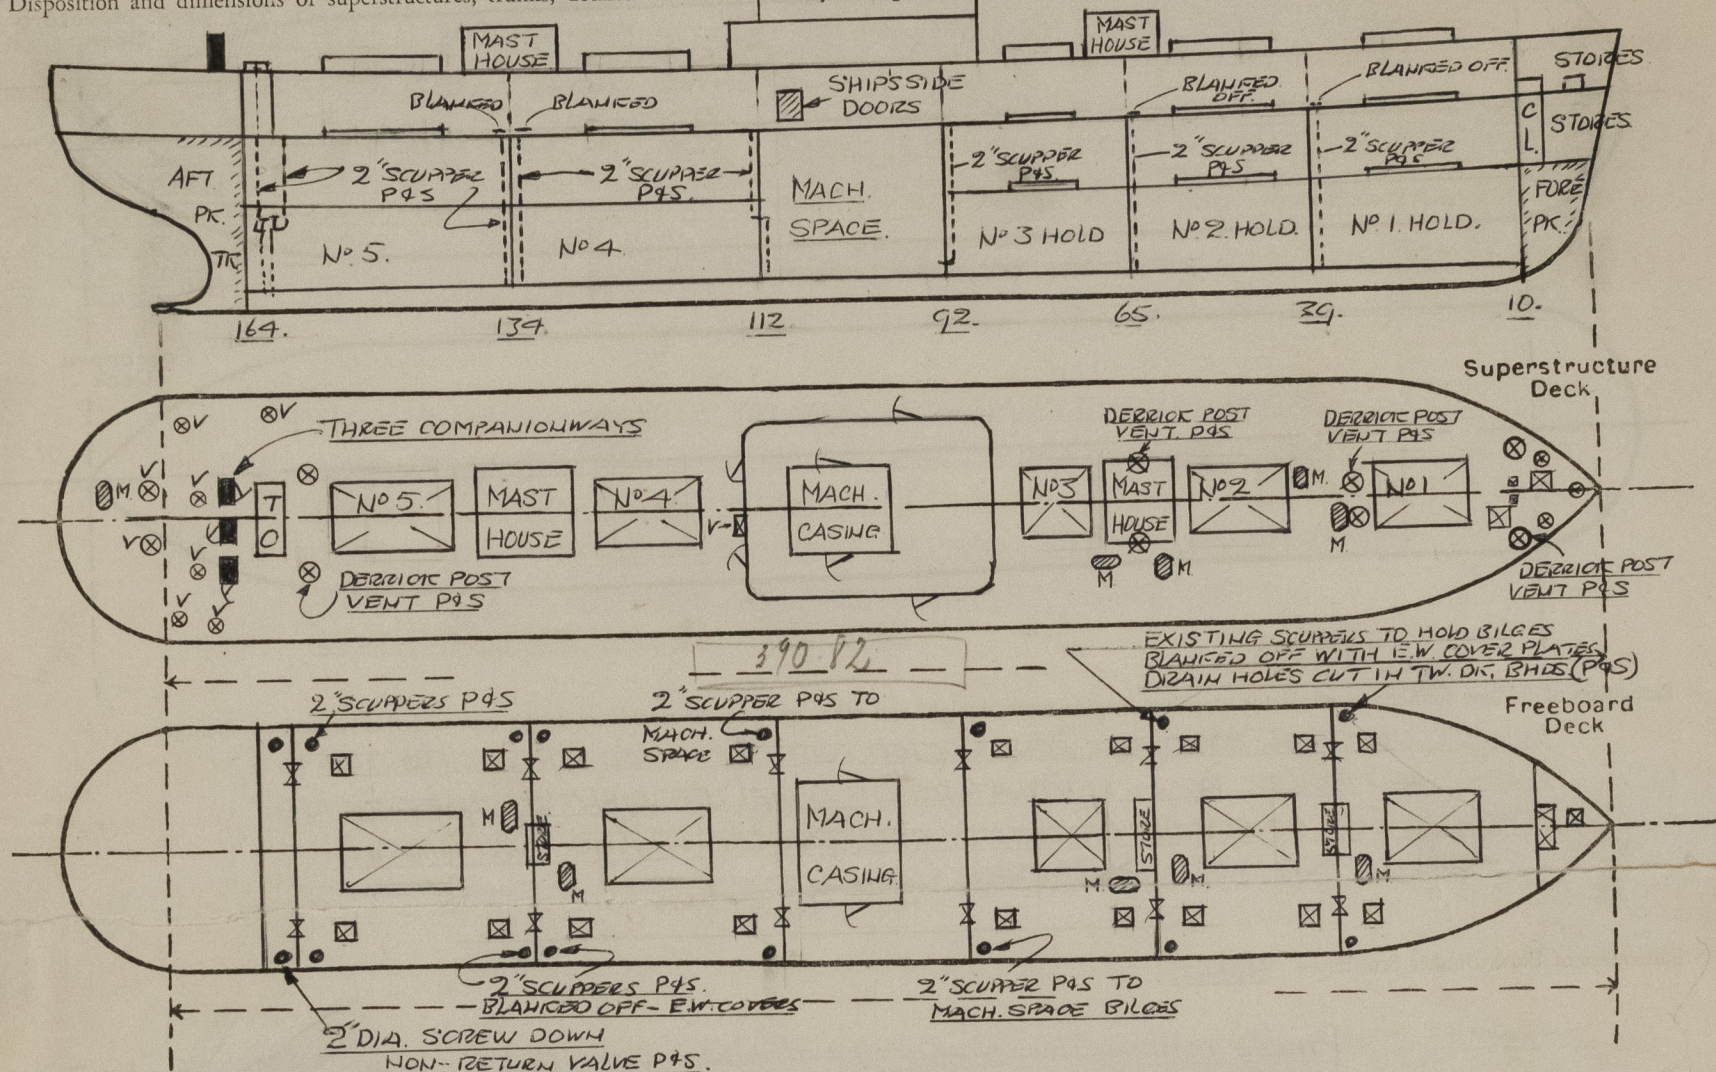 Disposition and dimensions of superstructures, trunks,
MAST
HOUSE
MAST
HOUSE
STORES
BLANKED
BLANKED
SHIP'S SIDE
DOORS
BLANKED
OFF.
BLANKED OFF.
C
L.
STORES
AFT
PK.
TK
2" SCUPPER
P&S
2" SCUPPER
P&S.
MACH.
SPACE.
2" SCUPPER
P&S.
2" SCUPPER
P&S.
2" SCUPPER
P&S.
FORE
PK.
No 5.
No 4
No 3 HOLD
No 2. HOLD.
No 1. HOLD.
164.
134.
112
92.
65.
39.
10.
Superstructure
Deck
V
V
THREE COMPANIONWAYS
DERRICK POST
VENT. P&S
DERRICK POST
VENT P&S
M
V
V
T
O
No 5.
MAST
HOUSE
No 4
V
MACH.
CASING
No 3
MAST
HOUSE
No 2
M.
No 1
V
V
V
V
DERRICK POST
VENT P&S
M
M
M.
DERRICK POST
VENT P&S
390.82
EXISTING SCUPPERS TO HOLD BILGES
BLANKED OFF WITH E.W. COVER PLATES
DRAIN HOLES CUT IN TW. DK. BHDS. (P&S)
2" SCUPPERS P&S
2" SCUPPER P&S TO
MACH.
SPACE
Freeboard
Deck
M
STORE
M
MACH.
CASING
STORE
M
M
STORE
M
2" SCUPPERS P&S.
BLANKED OFF - E.W. COVERS
2" SCUPPER P&S TO
MACH. SPACE BILGES
2" DIA. SCREW DOWN
NON-RETURN VALVE P&S.